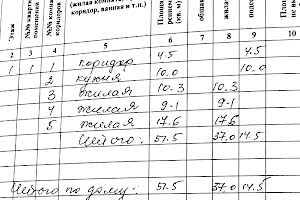 (жилая комнат
коридор, ванная и т.п.)
Этаж
№№ комн
коридоров
(кв. м)
жила
2 3 4 5 6 8 9 10
1 1 1 коридор 4.5 4.5
2 кухня 10.0 10.0
3 жилая 10.3 10.3
4 жилая 9.1 9.1
5 жилая 17.6 17.6
Итого: 51.5 37.0 14.5
Итого по дому: 51.5 37.0 14.5